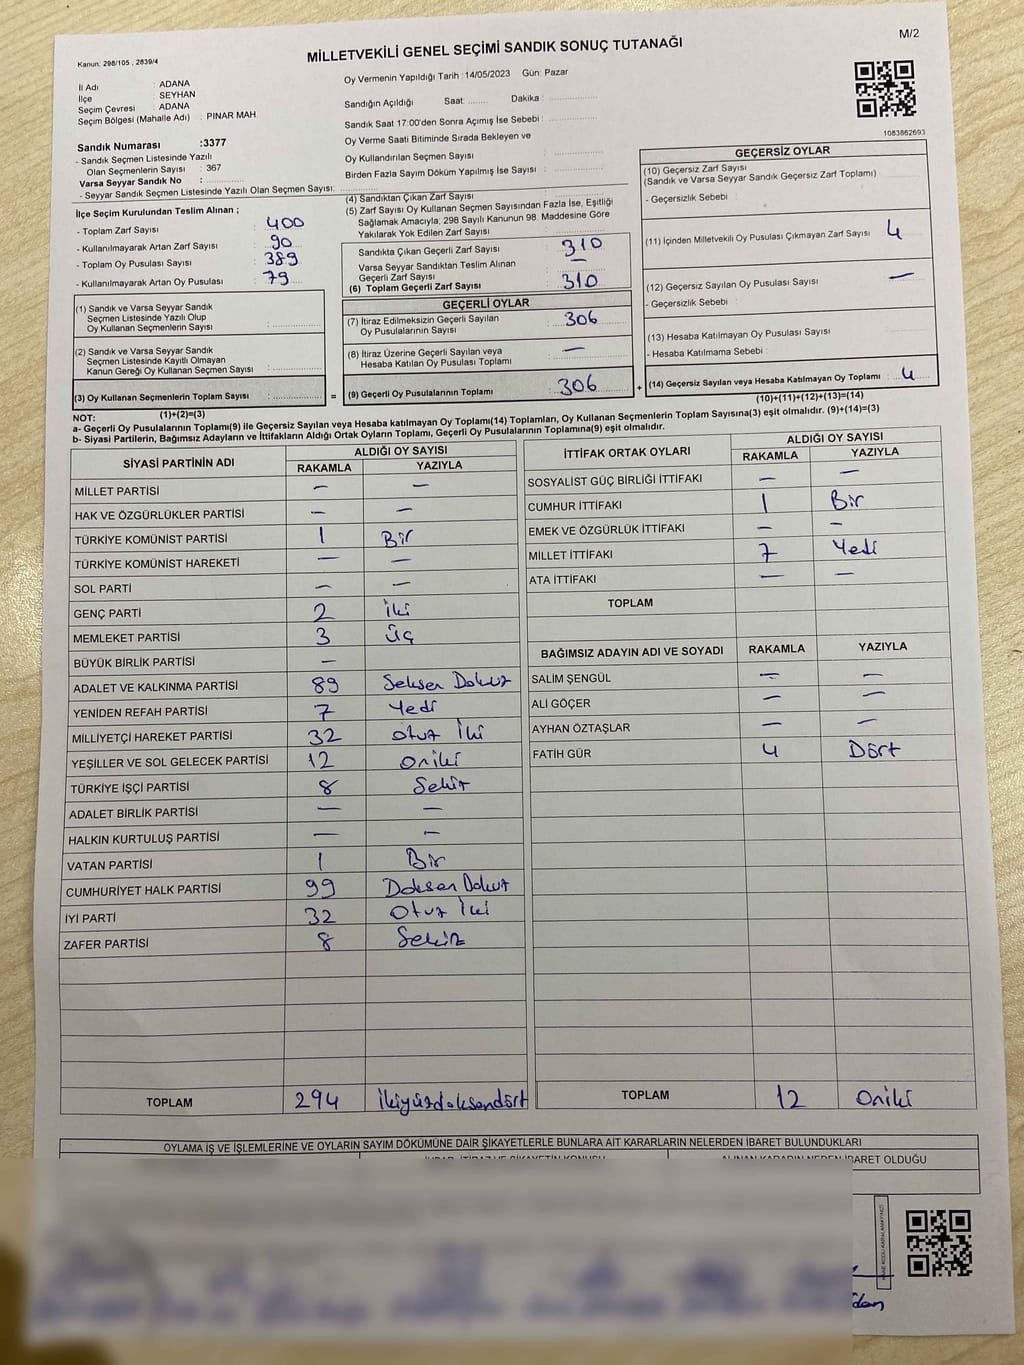 MİLLETVEKİLİ GENEL SEÇİMİ SANDIK SONUÇ TUTANAĞI
M/2
Kanun: 298/105 , 2839/4
İl Adı : ADANA
İlçe : SEYHAN
Seçim Çevresi : ADANA
Seçim Bölgesi (Mahalle Adı) : PINAR MAH
Sandık Numarası :3377
- Sandık Seçmen Listesinde Yazılı
Olan Seçmenlerin Sayısı : 367
Varsa Seyyar Sandık No :
- Seyyar Sandık Seçmen Listesinde Yazılı Olan Seçmen Sayısı:
Oy Vermenin Yapıldığı Tarih : 14/05/2023 Gün: Pazar
Sandığın Açıldığı Saat: Dakika :
Sandık Saat 17:00'den Sonra Açımış İse Sebebi :
Oy Verme Saati Bitiminde Sırada Bekleyen ve
Oy Kullandırılan Seçmen Sayısı :
Birden Fazla Sayım Döküm Yapılmış İse Sayısı :
1083862693
İlçe Seçim Kurulundan Teslim Alınan ;
- Toplam Zarf Sayısı : 400
- Kullanılmayarak Artan Zarf Sayısı : 90
- Toplam Oy Pusulası Sayısı : 389
- Kullanılmayarak Artan Oy Pusulası : 79
(1) Sandık ve Varsa Seyyar Sandık
Seçmen Listesinde Yazılı Olup
Oy Kullanan Seçmenlerin Sayısı :
(2) Sandık ve Varsa Seyyar Sandık
Seçmen Listesinde Kayıtlı Olmayan
Kanun Gereği Oy Kullanan Seçmen Sayısı :
(3) Oy Kullanan Seçmenlerin Toplam Sayısı :
(1)+(2)=(3)
(4) Sandıktan Çıkan Zarf Sayısı :
(5) Zarf Sayısı Oy Kullanan Seçmen Sayısından Fazla İse, Eşitliği
Sağlamak Amacıyla; 298 Sayılı Kanunun 98. Maddesine Göre
Yakılarak Yok Edilen Zarf Sayısı :
Sandıkta Çıkan Geçerli Zarf Sayısı : 310
Varsa Seyyar Sandıktan Teslim Alınan
Geçerli Zarf Sayısı : —
(6) Toplam Geçerli Zarf Sayısı : 310
GEÇERLİ OYLAR
(7) İtiraz Edilmeksizin Geçerli Sayılan
Oy Pusulalarının Sayısı : 306
(8) İtiraz Üzerine Geçerli Sayılan veya
Hesaba Katılan Oy Pusulası Toplamı : —
= (9) Geçerli Oy Pusulalarının Toplamı : 306 +
GEÇERSİZ OYLAR
(10) Geçersiz Zarf Sayısı
(Sandık ve Varsa Seyyar Sandık Geçersiz Zarf Toplamı) :
- Geçersizlik Sebebi :
(11) İçinden Milletvekili Oy Pusulası Çıkmayan Zarf Sayısı : 4
(12) Geçersiz Sayılan Oy Pusulası Sayısı : —
- Geçersizlik Sebebi :
(13) Hesaba Katılmayan Oy Pusulası Sayısı :
- Hesaba Katılmama Sebebi :
(14) Geçersiz Sayılan veya Hesaba Katılmayan Oy Toplamı : 4
(10)+(11)+(12)+(13)=(14)
NOT:
a- Geçerli Oy Pusulalarının Toplamı(9) ile Geçersiz Sayılan veya Hesaba katılmayan Oy Toplamı(14) Toplamları, Oy Kullanan Seçmenlerin Toplam Sayısına(3) eşit olmalıdır. (9)+(14)=(3)
b- Siyasi Partilerin, Bağımsız Adayların ve İttifakların Aldığı Ortak Oyların Toplamı, Geçerli Oy Pusulalarının Toplamına(9) eşit olmalıdır.
SİYASİ PARTİNİN ADI ALDIĞI OY SAYISI
RAKAMLA YAZIYLA
MİLLET PARTİSİ — —
HAK VE ÖZGÜRLÜKLER PARTİSİ — —
TÜRKİYE KOMÜNİST PARTİSİ 1 Bir
TÜRKİYE KOMÜNİST HAREKETİ — —
SOL PARTİ — —
GENÇ PARTİ 2 iki
MEMLEKET PARTİSİ 3 üç
BÜYÜK BİRLİK PARTİSİ —
ADALET VE KALKINMA PARTİSİ 89 Seksen Dokuz
YENİDEN REFAH PARTİSİ 7 Yedi
MİLLİYETÇİ HAREKET PARTİSİ 32 otuz İki
YEŞİLLER VE SOL GELECEK PARTİSİ 12 oniki
TÜRKİYE İŞÇİ PARTİSİ 8 Sekiz
ADALET BİRLİK PARTİSİ — —
HALKIN KURTULUŞ PARTİSİ — —
VATAN PARTİSİ 1 Bir
CUMHURİYET HALK PARTİSİ 99 Doksan Dokuz
İYİ PARTİ 32 Otuz İki
ZAFER PARTİSİ 8 Sekiz
TOPLAM 294 ikiyüzdoksandört
İTTİFAK ORTAK OYLARI ALDIĞI OY SAYISI
RAKAMLA YAZIYLA
SOSYALİST GÜÇ BİRLİĞİ İTTİFAKI — —
CUMHUR İTTİFAKI 1 Bir
EMEK VE ÖZGÜRLÜK İTTİFAKI — —
MİLLET İTTİFAKI 7 Yedi
ATA İTTİFAKI — —
TOPLAM
BAĞIMSIZ ADAYIN ADI VE SOYADI RAKAMLA YAZIYLA
SALİM ŞENGÜL — —
ALİ GÖÇER — —
AYHAN ÖZTAŞLAR — —
FATİH GÜR 4 Dört
TOPLAM 12 Oniki
OYLAMA İŞ VE İŞLEMLERİNE VE OYLARIN SAYIM DÖKÜMÜNE DAİR ŞİKAYETLERLE BUNLARA AİT KARARLARIN NELERDEN İBARET BULUNDUKLARI
ALINAN KARARIN NEDEN İBARET OLDUĞU